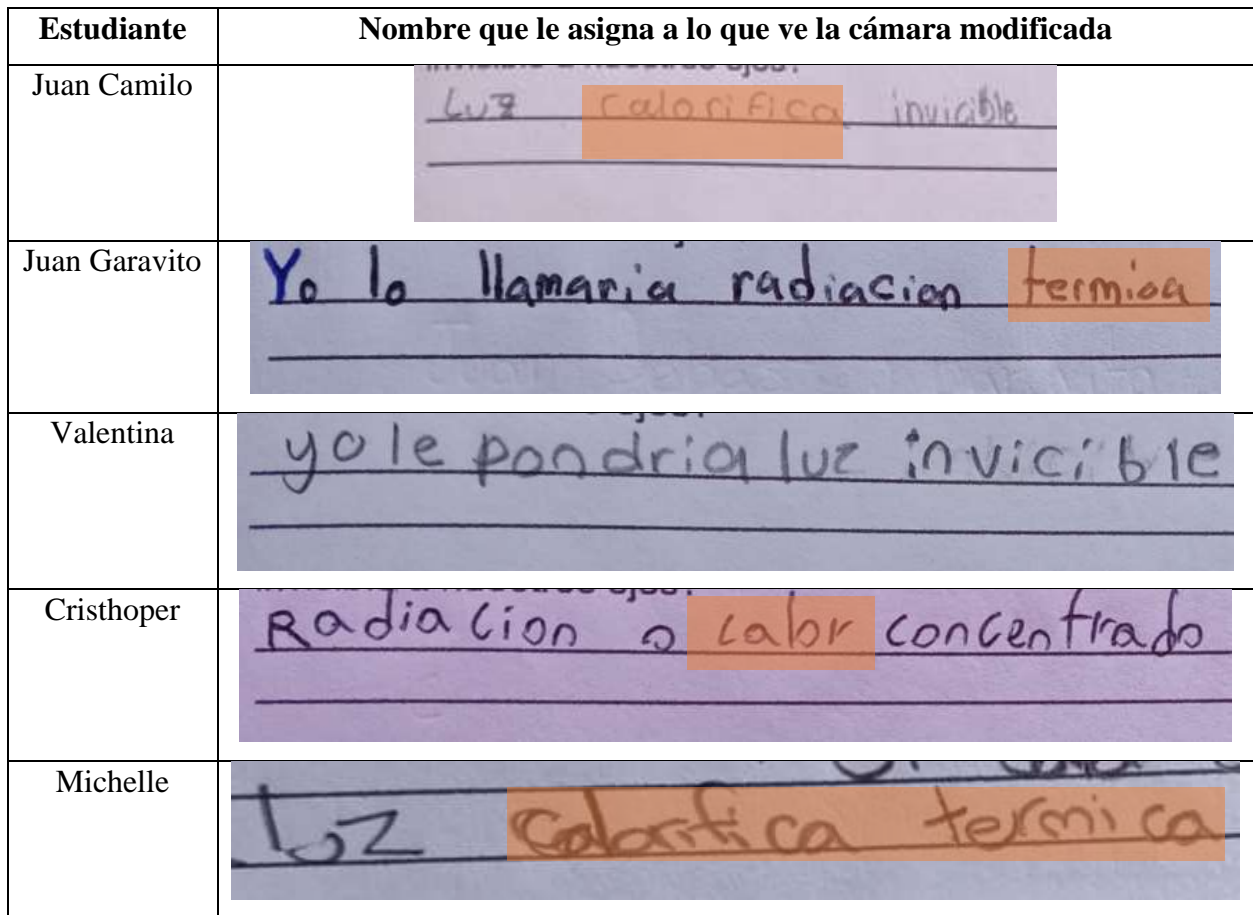 Estudiante Nombre que le asigna a lo que ve la cámara modificada
Juan Camilo
Luz calorifica invicible
Juan Garavito
Yo lo llamaria radiacion termica
Valentina
yo le pondria luz invicible
Cristhoper
Radiacion o calor concentrado
Michelle
Luz calorifica termica